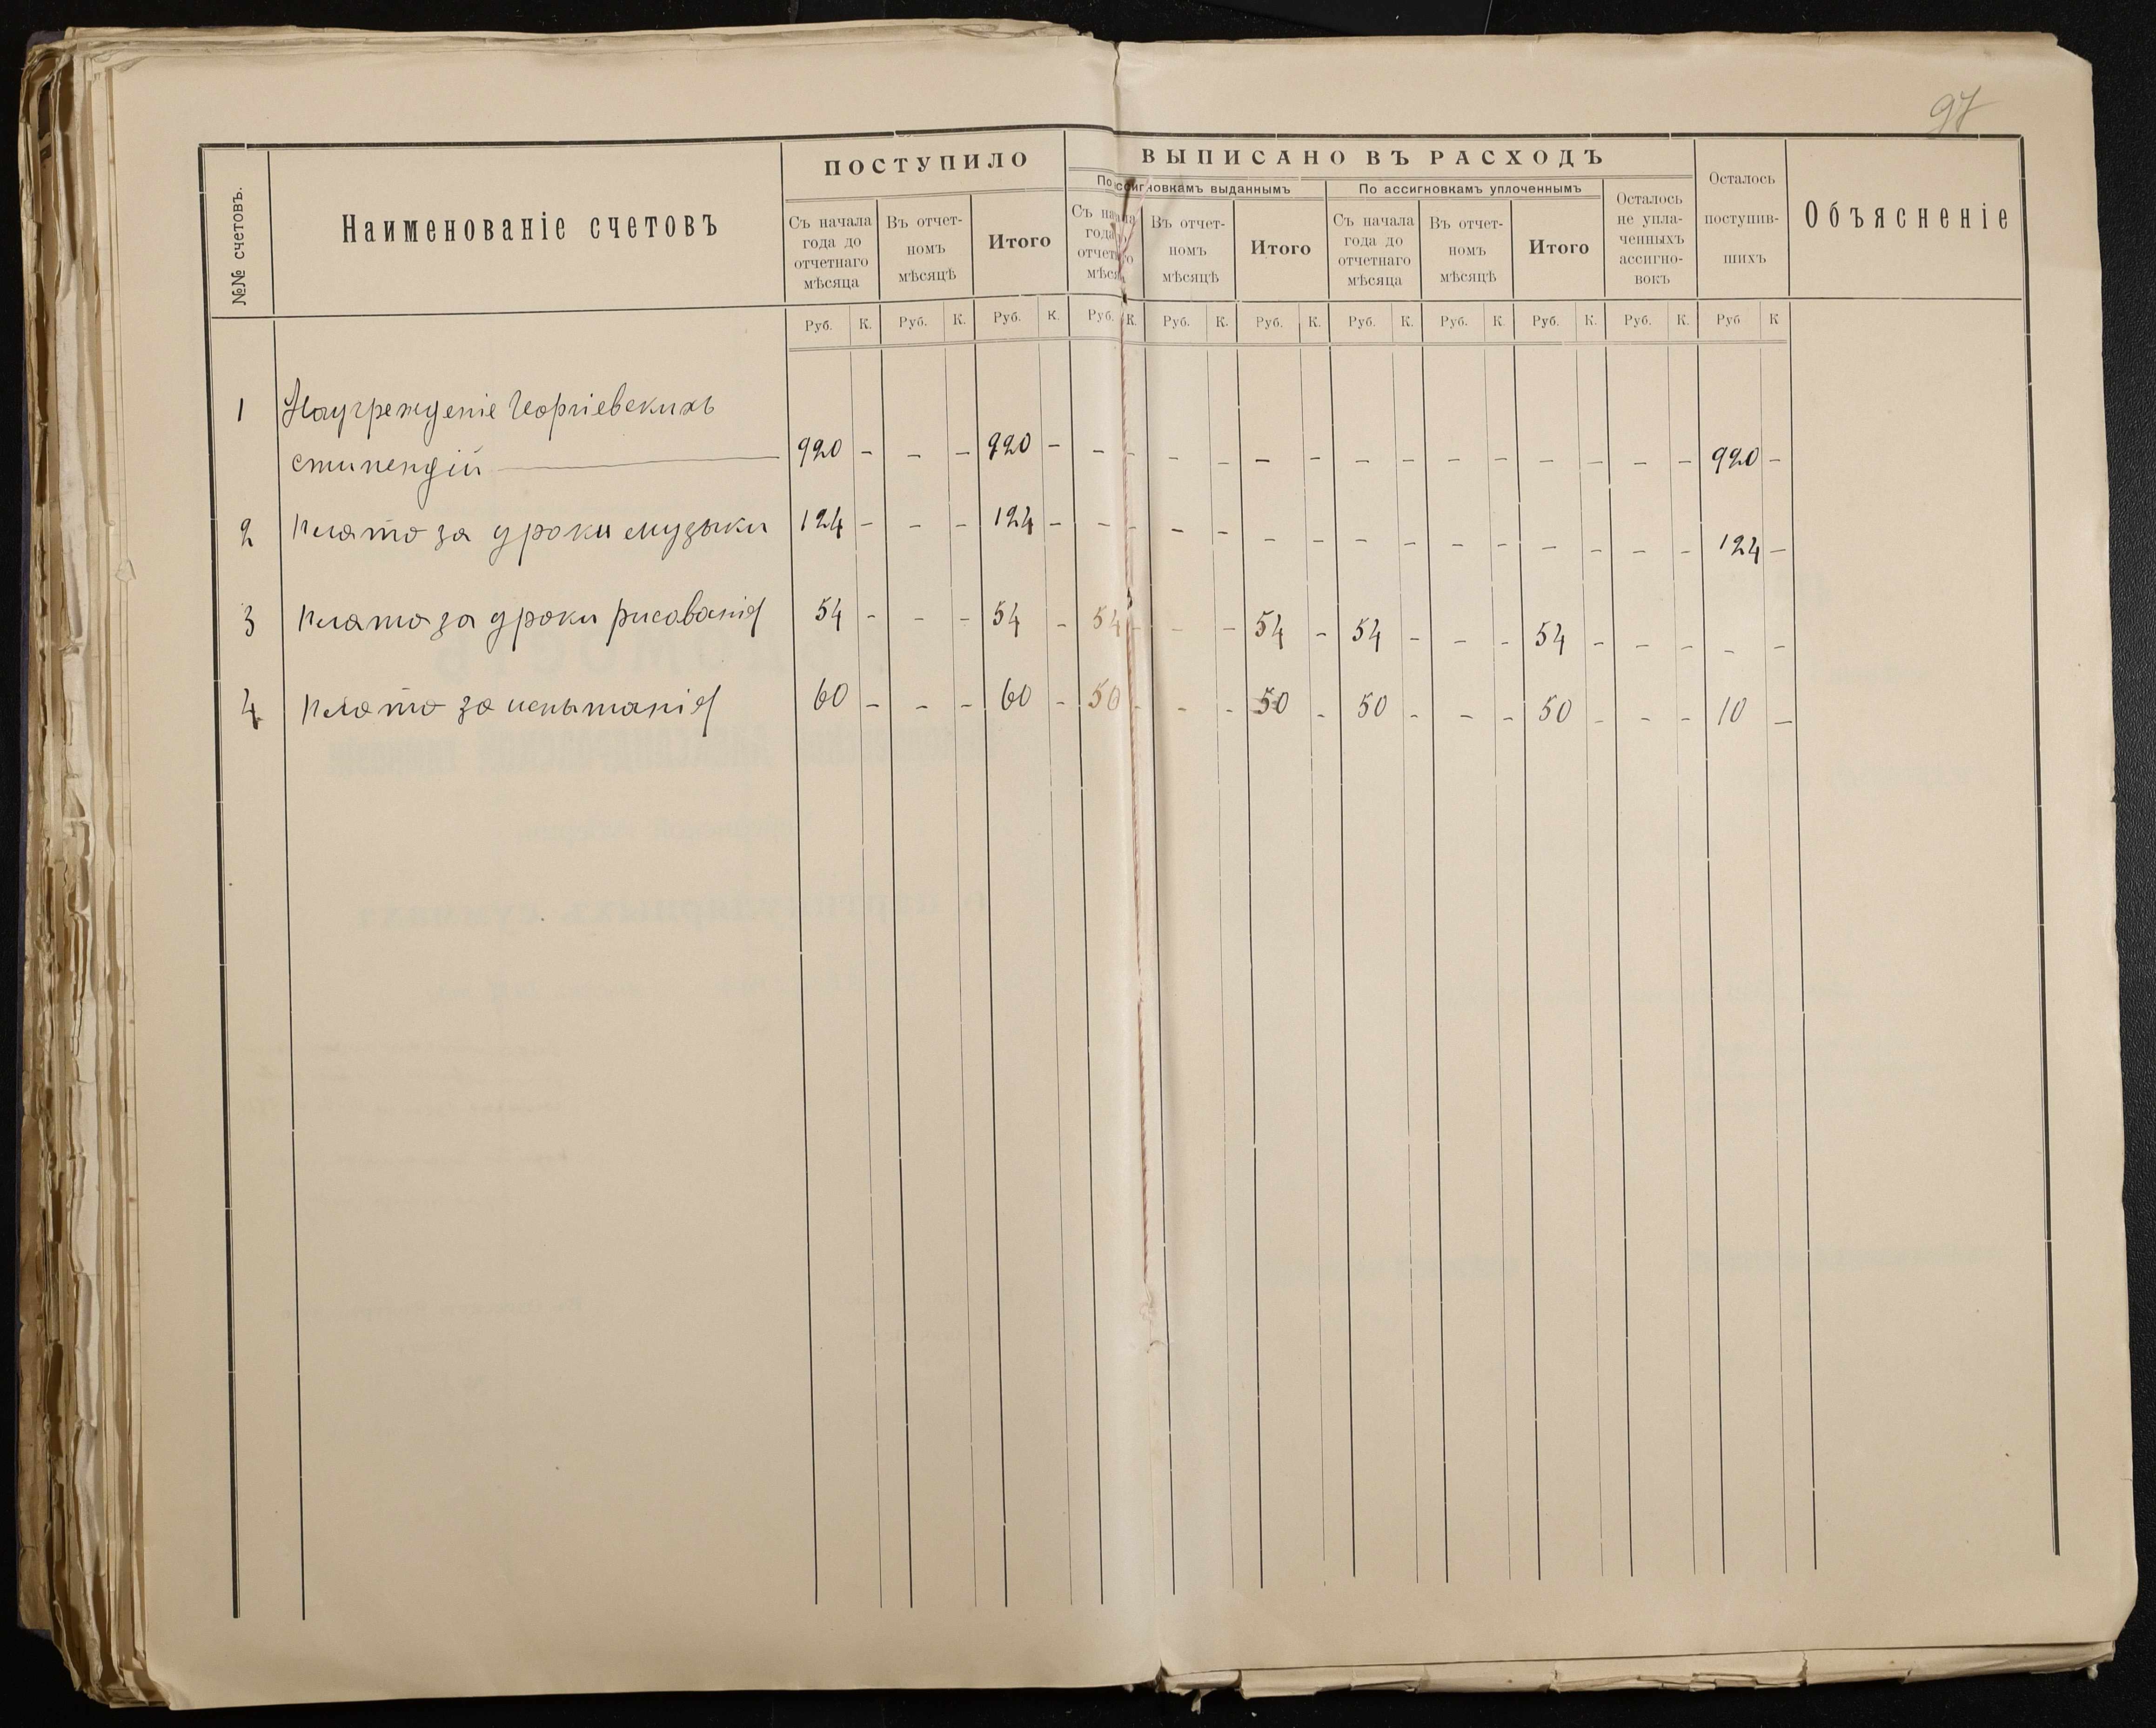 97
№№ счетовъ.
Наименованіе счетовъ
ПОСТУПИЛО
ВЫПИСАНО ВЪ РАСХОДЪ
По ассигновкамъ выданнымъ
По ассигновкамъ уплоченнымъ
Съ начала
года до
отчетнаго
мѣсяца
Въ отчет-
номъ
мѣсяцѣ
Итого
Съ начала
года
отчетнаго
мѣсяца
Въ отчет-
номъ
мѣсяцѣ
Итого
Съ начала
года до
отчетнаго
мѣсяца
Въ отчет-
номъ
мѣсяцѣ
Итого
Осталось
не упла-
ченныхъ
ассигно-
вокъ
Осталось
поступив-
шихъ
Объясненіе
Руб. К. Руб. К. Руб. К. Руб. К. Руб. К. Руб. К. Руб. К. Руб. К. Руб. К. Руб. К. Руб К
1 На учрежденіе Георгіевскихъ
стипендій 920 - - - 920 - - - - - - - - - - - - - - - 920 -
2 Плата за уроки музыки 124 - - - 124 - - - - - - - - - - - - - - - 124 -
3 Плата за уроки рисованія 54 - - - 54 - 54 - - - 54 - 54 - - - 54 - - - - -
4 Плата за испытанія 60 - - - 60 - 50 - - - 50 - 50 - - - 50 - - - 10 -